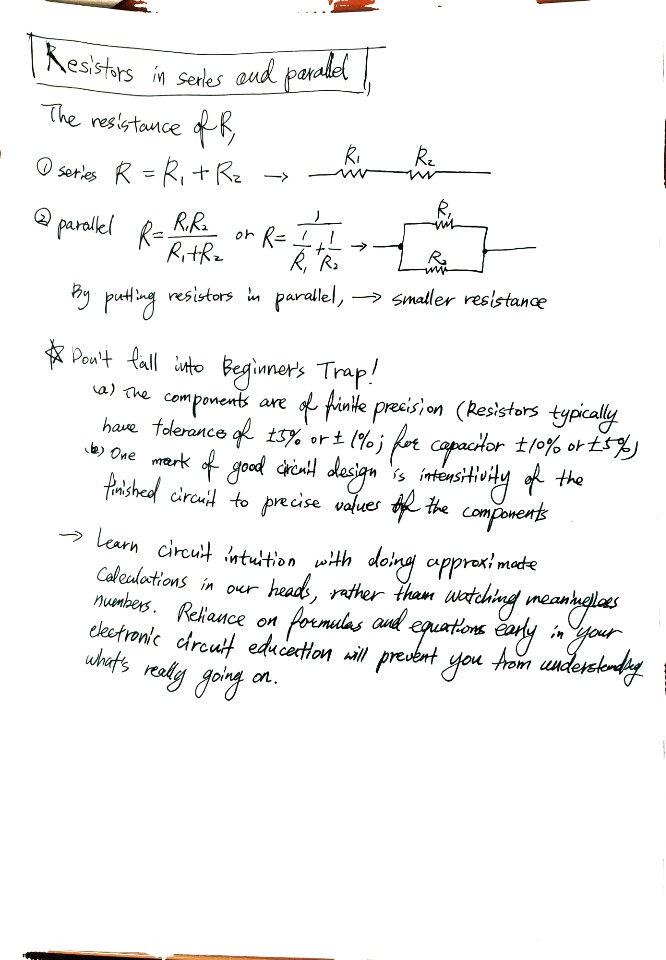 Resistors in series and parallel
The resistance of R,
① series R = R₁ + R₂ → R₁ R₂
② parallel R = R₁R₂ / R₁+R₂ or R = 1 / 1/R₁ + 1/R₂ → R₁ R₂
By putting resistors in parallel, → smaller resistance
☆ Don't fall into Beginner's Trap!
(a) The components are of finite precision (Resistors typically
have tolerances of ±5% or ±1%; for capacitor ±10% or ±5%)
(b) One mark of good circuit design is intensitivity of the
finished circuit to precise values of the components
→ Learn circuit intuition with doing approximate
calculations in our heads, rather than watching meaningless
numbers. Reliance on formulas and equations early in your
electronic circuit education will prevent you from understanding
what's really going on.